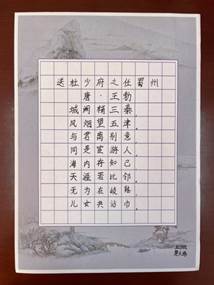 送杜少府之任蜀州
唐·王勃
城阙辅三秦，
风烟望五津。
与君离别意，
同是宦游人。
海内存知己，
天涯若比邻。
无为在歧路，
儿女共沾巾。